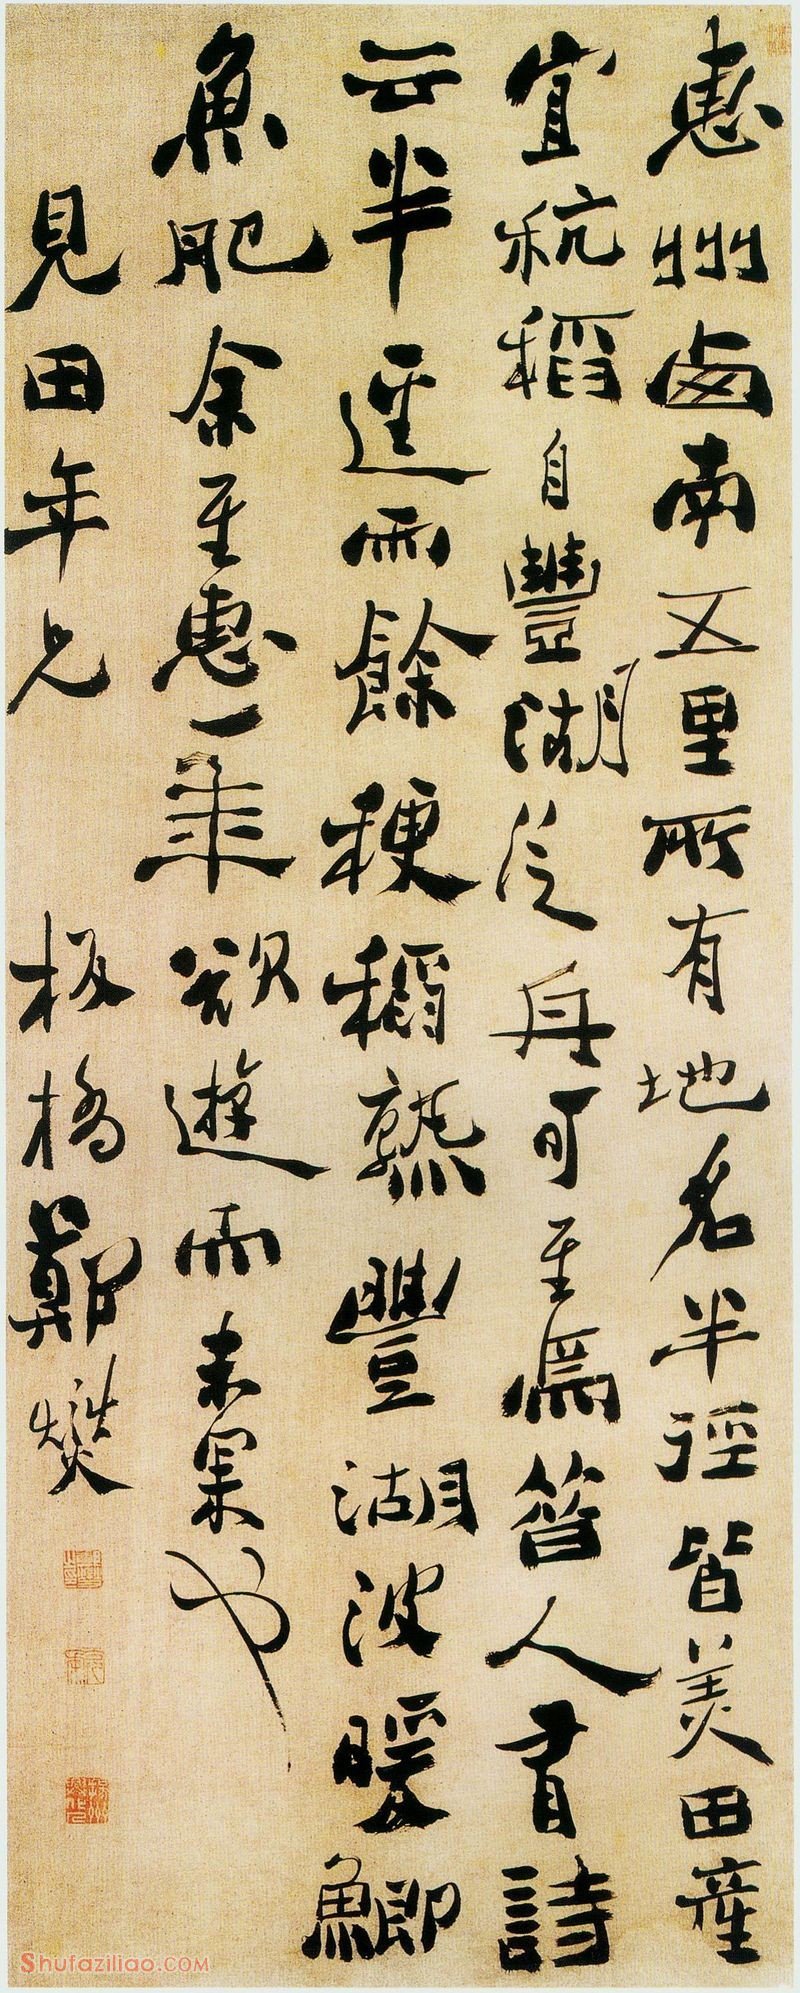 惠州鹵南五里所有地名半徑皆美田產
宜秔稻自豐湖泛舟可至焉昔人有詩
云半逕雨餘稉稻熟豐湖波暖鯽
魚肥余至惠一年欲遊而未果也
見田年兄 板橋鄭燮
Shufaziliao.COM